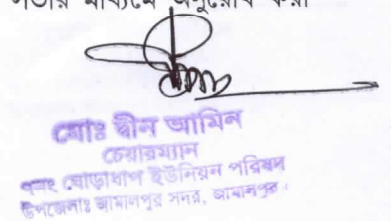 সভার মাধ্যমে অনুরোধ করা
মোঃ দ্বীন আমিন
চেয়ারম্যান
ঘোড়াধাপ ইউনিয়ন পরিষদ
উপজেলাঃ জামালপুর সদর, জামালপুর।